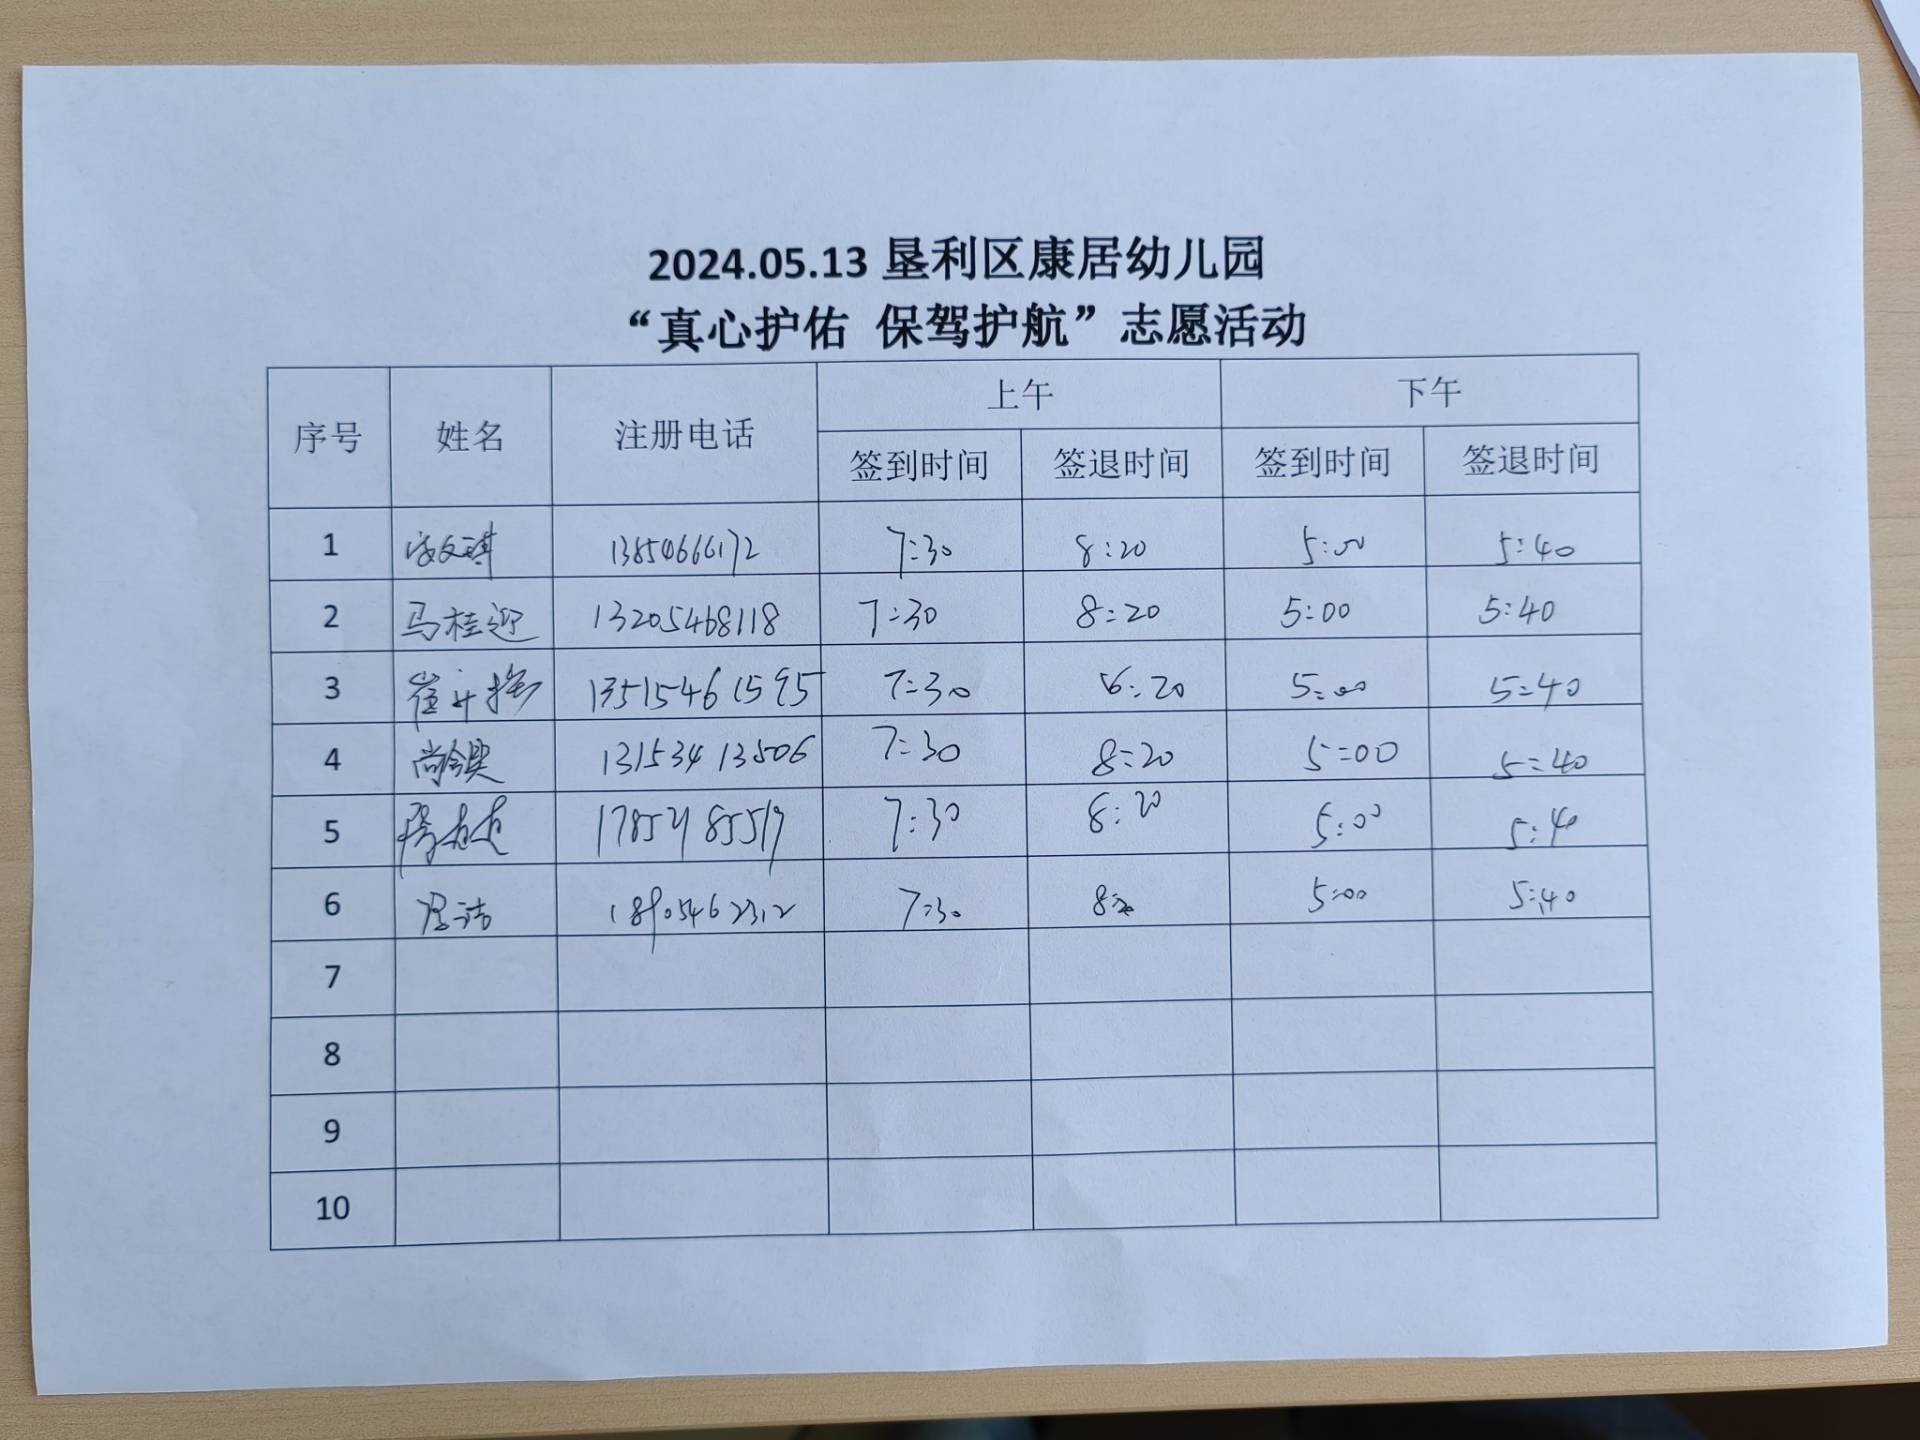 2024.05.13 垦利区康居幼儿园
“真心护佑 保驾护航”志愿活动
序号 姓名 注册电话 上午 下午
签到时间 签退时间 签到时间 签退时间
1 文琪 13854666172 7:30 8:20 5:00 5:40
2 马桂迎 13205468118 7:30 8:20 5:00 5:40
3 崔 13515461595 7:30 8:20 5:00 5:40
4 尚 13153413506 7:30 8:20 5:00 5:40
5 7:30 8:20 5:00 5:40
6 18905462312 7:30 8:20 5:00 5:40
7
8
9
10